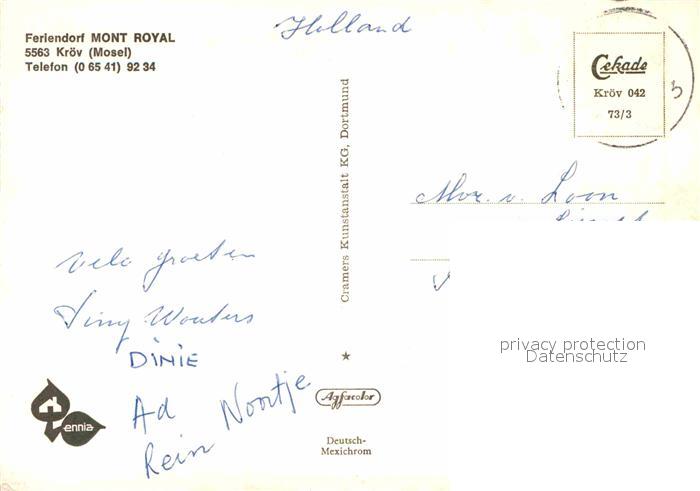 Feriendorf MONT ROYAL
5563 Kröv (Mosel)
Telefon (0 65 41) 92 34
Holland
Cekade
Kröv 042
73/3
Cramers Kunstanstalt KG, Dortmund
v. Loon
vele groeten
Tiny Wouters
DINIE
Ad
Rein Noortje
ennia
Agfacolor
Deutsch-
Mexichrom
privacy protection
Datenschutz